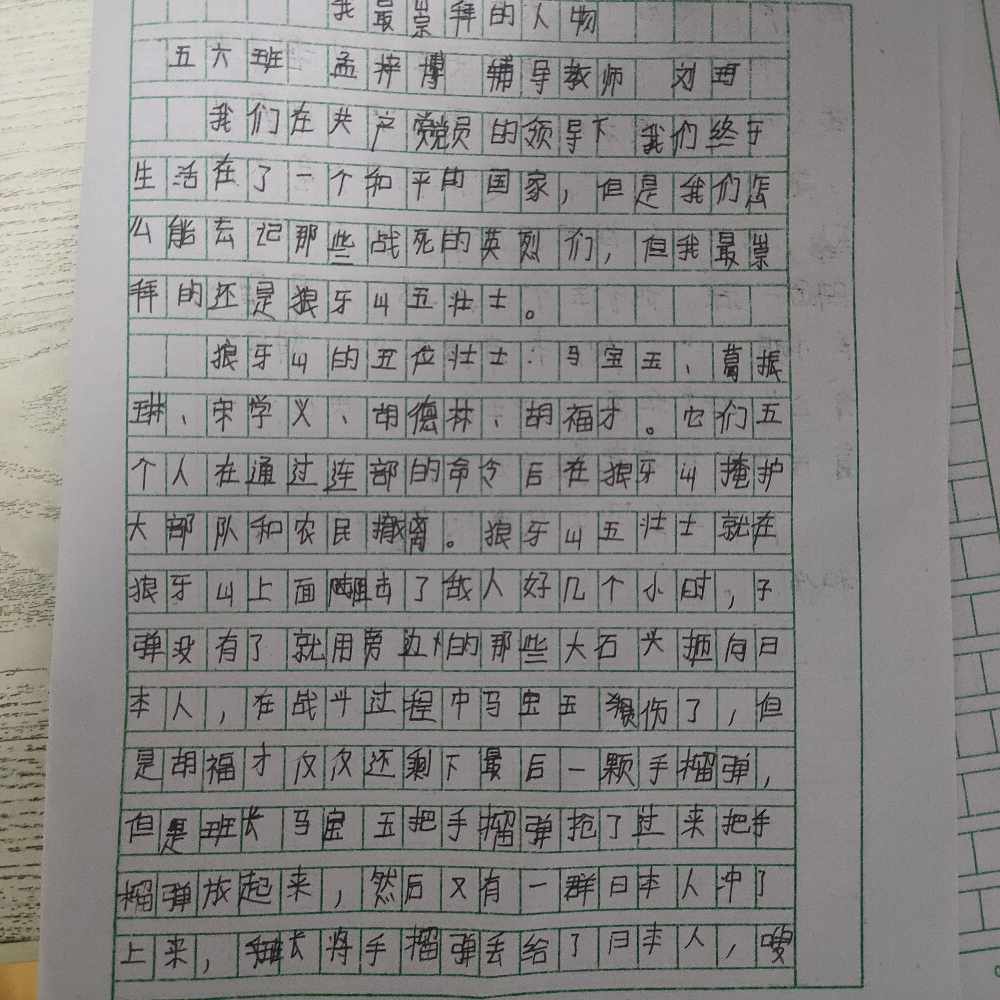 我最崇拜的人物
五六班 孟梓博 辅导教师 刘珂
我们在共产党员的领导下我们终于
生活在了一个和平的国家，但是我们怎
么能忘记那些战死的英烈们，但我最崇
拜的还是狼牙山五壮士。
狼牙山的五位壮士：马宝玉、葛振
琳、宋学义、胡德林、胡福才。它们五
个人在通过连部的命令后在狼牙山掩护
大部队和农民撤离。狼牙山五壮士就在
狼牙山上面阻击了敌人好几个小时，子
弹没有了就用旁边的那些大石头扼向日
本人，在战斗过程中马宝玉 伤了，但
是胡福才仅仅还剩下最后一颗手榴弹，
但是班长马宝玉把手榴弹抢了过来把手
榴弹放起来，然后又有一群日本人冲了
上来，班长将手榴弹丢给了日本人，嗖